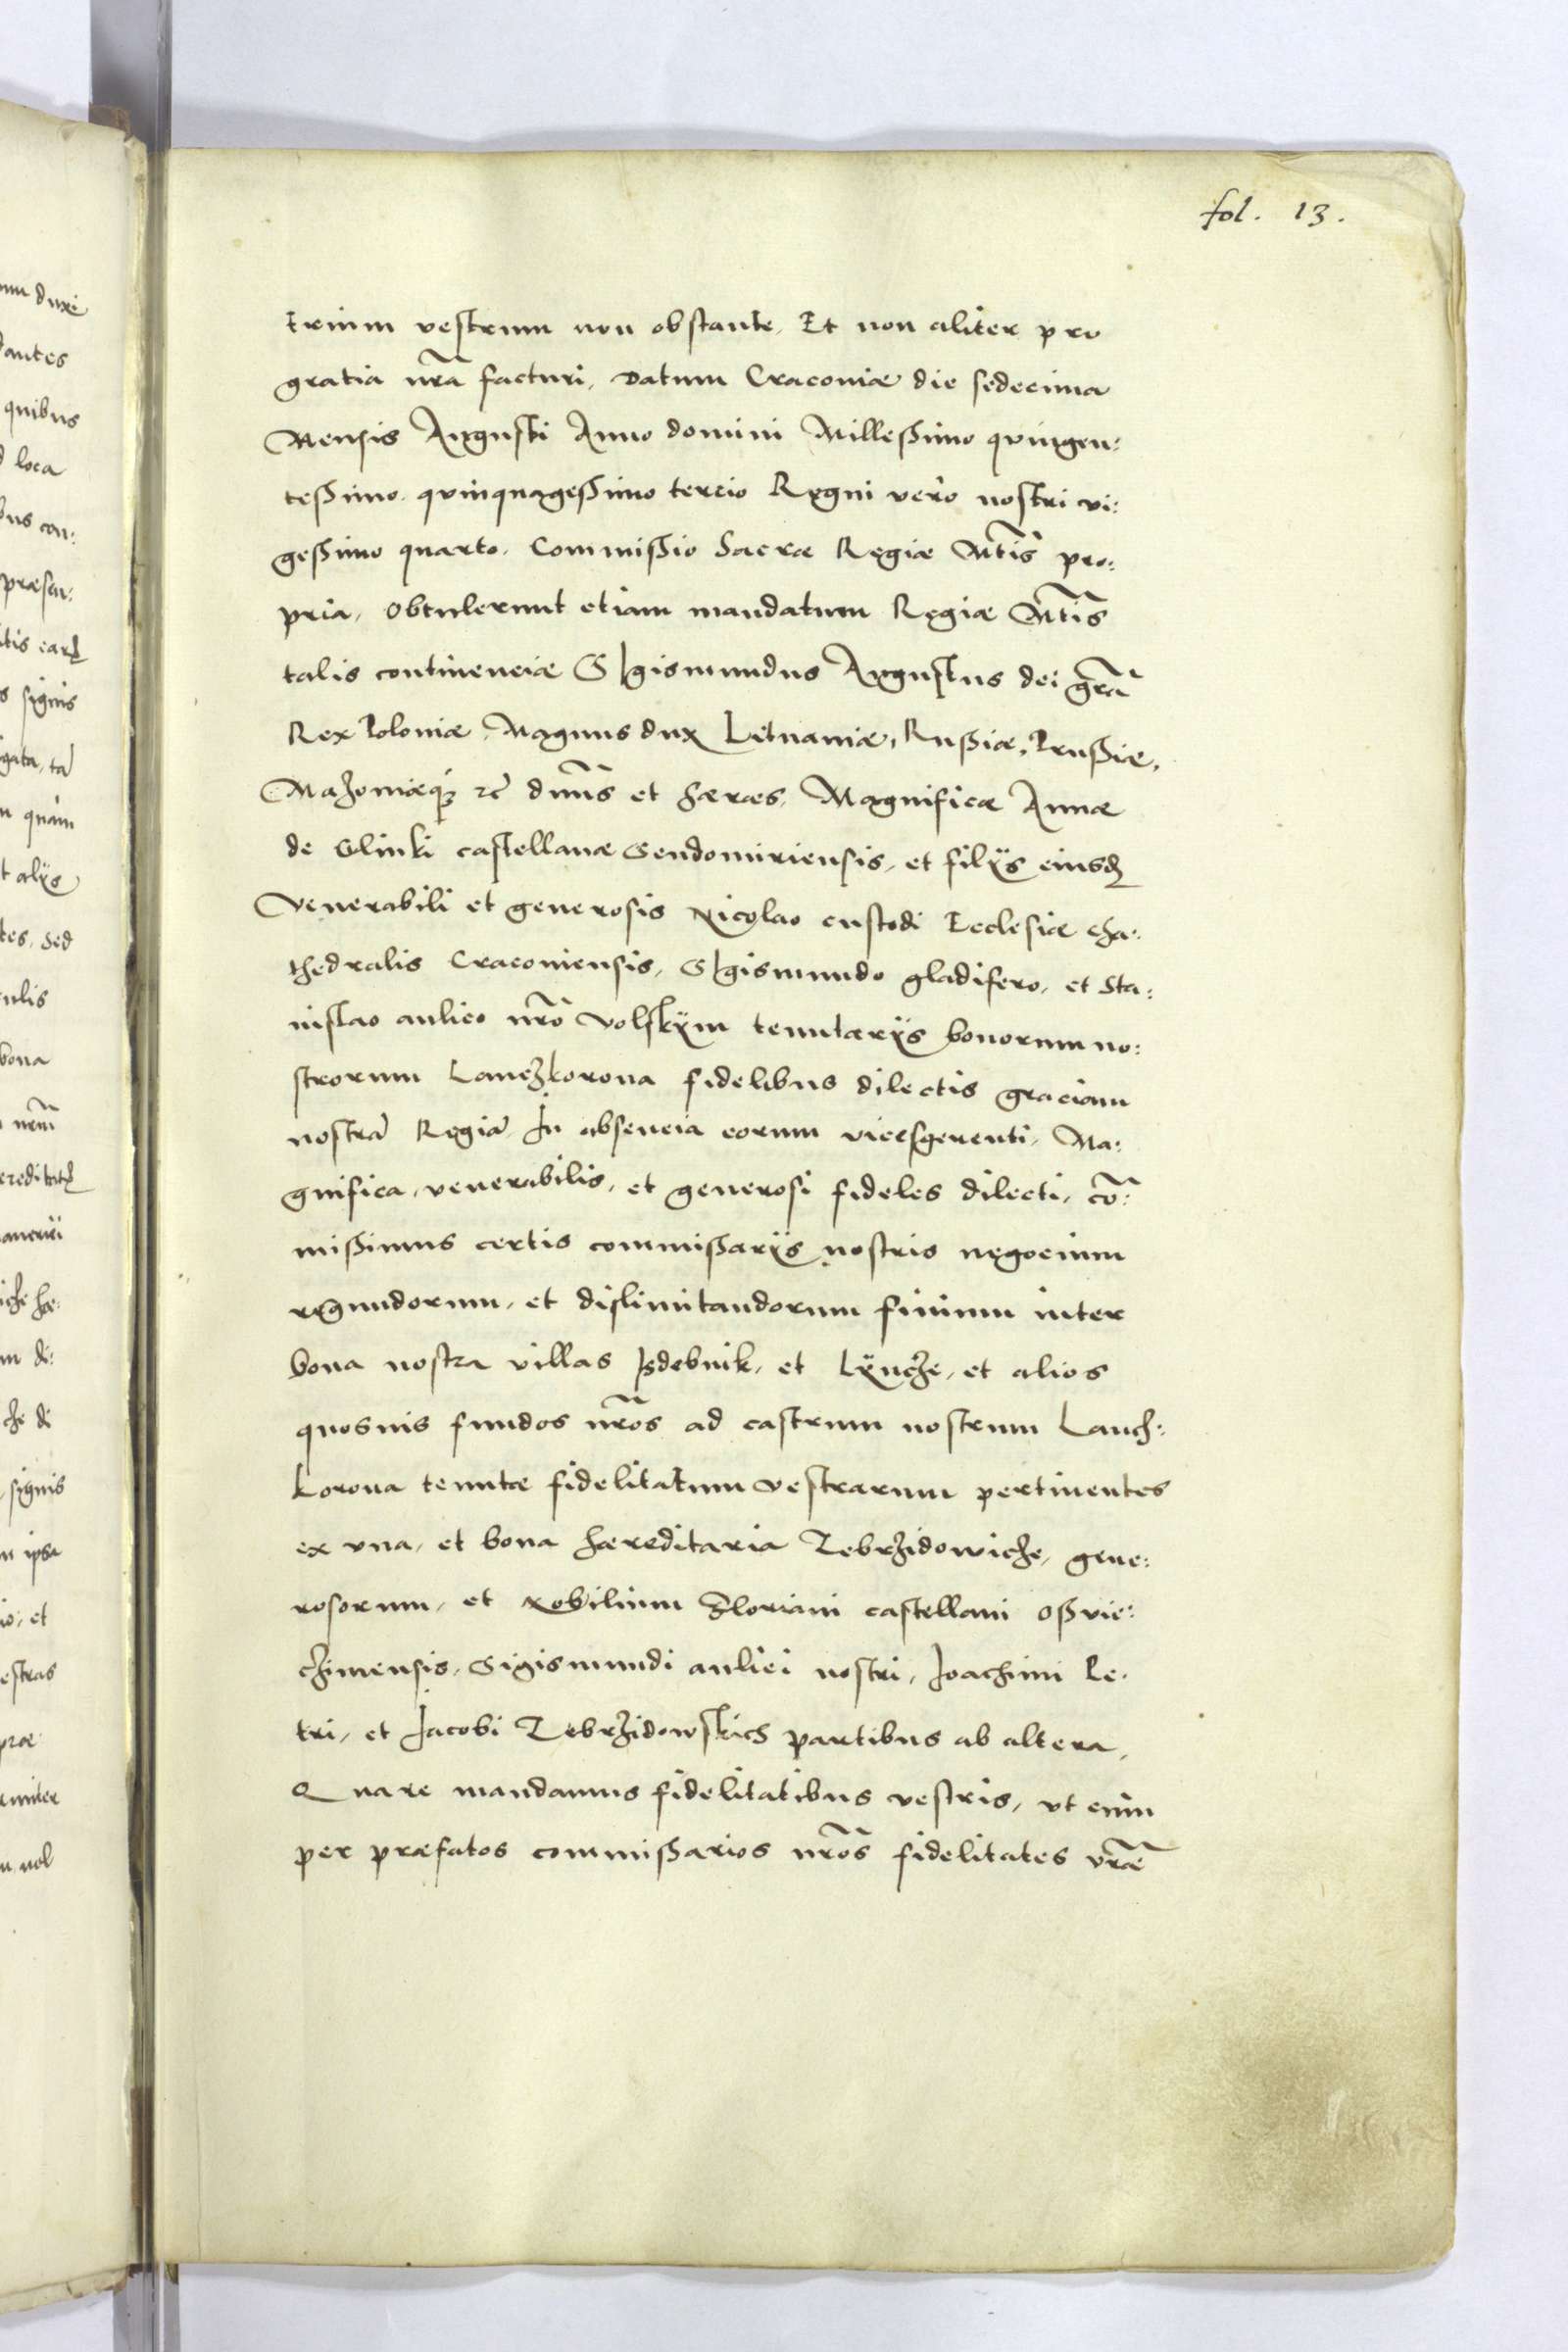 fol. 13.
trium vestrum non obstante, Et non aliter pro
gratia nr̃a facturi, Datum Cracoviæ die sedecima
Mensis Augusti Anno domini Milleßimo quingen:
teßimo quinquageßimo tercio Regni vero nostri vi:
geßimo quarto. Commißio Sacræ Regiæ Mtis pro:
pria, Obtulerunt etiam mandatum Regiæ Mtis
talis continenciæ Sigismundus Augustus dei grã
Rex Poloniæ, Magnus dux Lituaniæ, Rußiæ, Prußiæ,
Mazoviæq; etc̃ dnñs et hæres, Magnificæ Annæ
de Glinki castellanæ Sendomiriensis, et filÿs eiusd
Venerabili et generosis Nicolao custodi Ecclesiæ cha:
thedralis Cracoviensis, Sigismundo gladifero, et Sta:
nislao aulico nrõ Volskÿm tenutarÿs bonorum no:
strorum Lanczkorona fidelibus dilectis graciam
nostrã Regiã In absencia eorum vicesgerenti, Ma:
gnifica, venerabilis, et generosi fideles dilecti, cõ:
mißimus certis commißarÿs nostris negocium
regundorum, et dislimitandorum finium inter
bona nostra villas Isdebnik, et Lÿncze, et alios
quosvis fundos nrõs ad castrum nostrum Lancz:
korona tenutæ fidelitatum vestrarum pertinentes
ex una, et bona hæreditaria Zebrzidowicze, gene:
rosorum, et Nobilium Floriani castellani Oßvie:
czimensis, Sigismundi aulici nostri, Joachimi Pe:
tri, et Jacobi Zebrzidowskich partibus ab altera,
Quare mandamus fidelitatibus vestris, ut cum
per præfatos commißarios nrõs fidelitates vræ̃